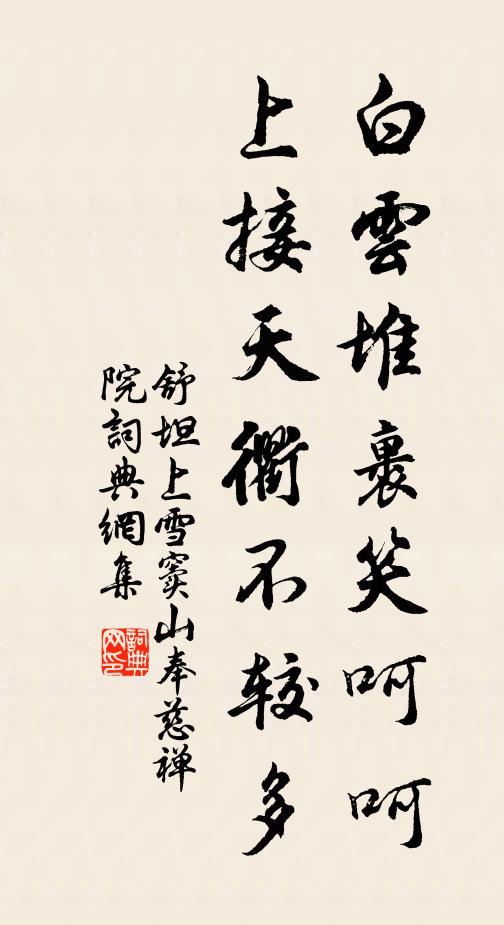 白雲堆裏笑呵呵
上接天衢不较多
舒坦上雪窦山奉慈禅
院詞典網集
詞典网印